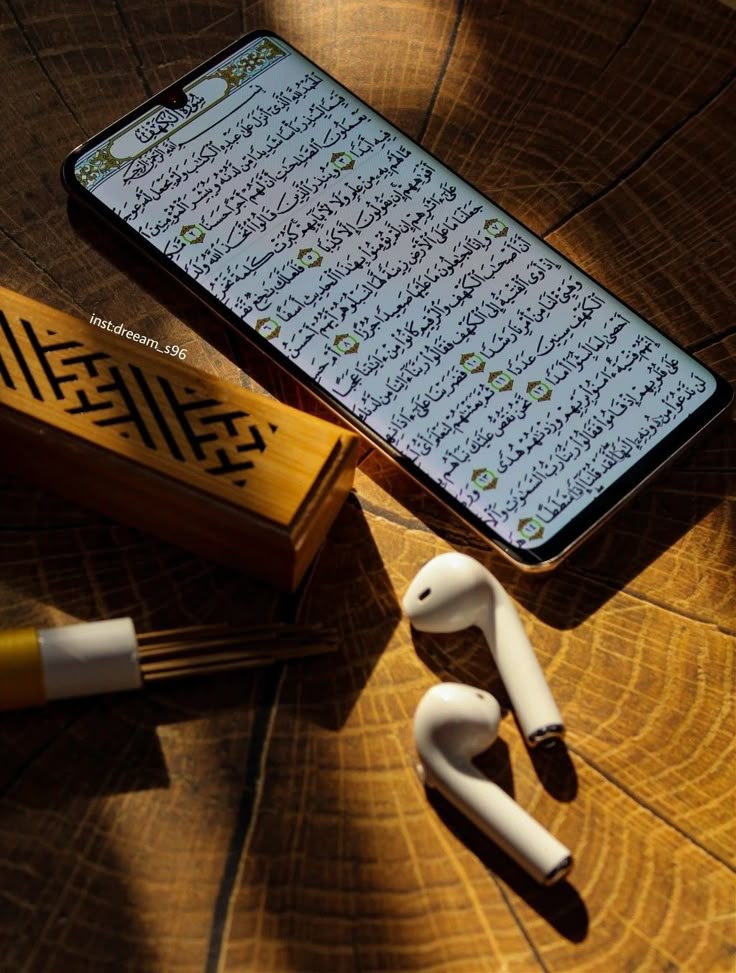 سورة الكهف
الله الرحمن الرحيم
لحمد لله الذي أنزل على عبده الكتب ولم يجعل له
قيما لينذر بأسا شديدا من لدنه ويبشر المؤمنين
يعملون الصلحت أن لهم أجرا حسنا ٢
فيه أبدا ٣ وينذر الذين قالوا اتخذ الله ولدا
لهم به من علم ولا لءابائهم كبرت كلمة تخرج
أفوههم إن يقولون إلا كذبا ٥ فلعلك بخع نفس
على ءاثرهم إن لم يؤمنوا بهذا الحديث أسفا ٦
جعلنا ما على الأرض زينة لها لنبلوهم أيهم أحسن
٧ وإنا لجعلون ما عليها صعيدا جرزا ٨
أن أصحب الكهف والرقيم كانوا من ءايتنا عجبا
إذ أوى الفتية إلى الكهف فقالوا ربنا ءاتنا من لدن
وهيئ لنا من أمرنا رشدا ١٠ فضربنا على ءاذانه
الكهف سنين عددا ١١ ثم بعثنهم لنعلم أي
أحصى لما لبثوا أمدا ١٢ نحن نقص عليك نبأهم
إنهم فتية ءامنوا بربهم وزدنهم هدى ١٣ ور
على قلوبهم إذ قاموا فقالوا ربنا رب السموت والأ
لن ندعوا من دونه إلها لقد قلنا إذا شططا ١٤
inst:dream_s96